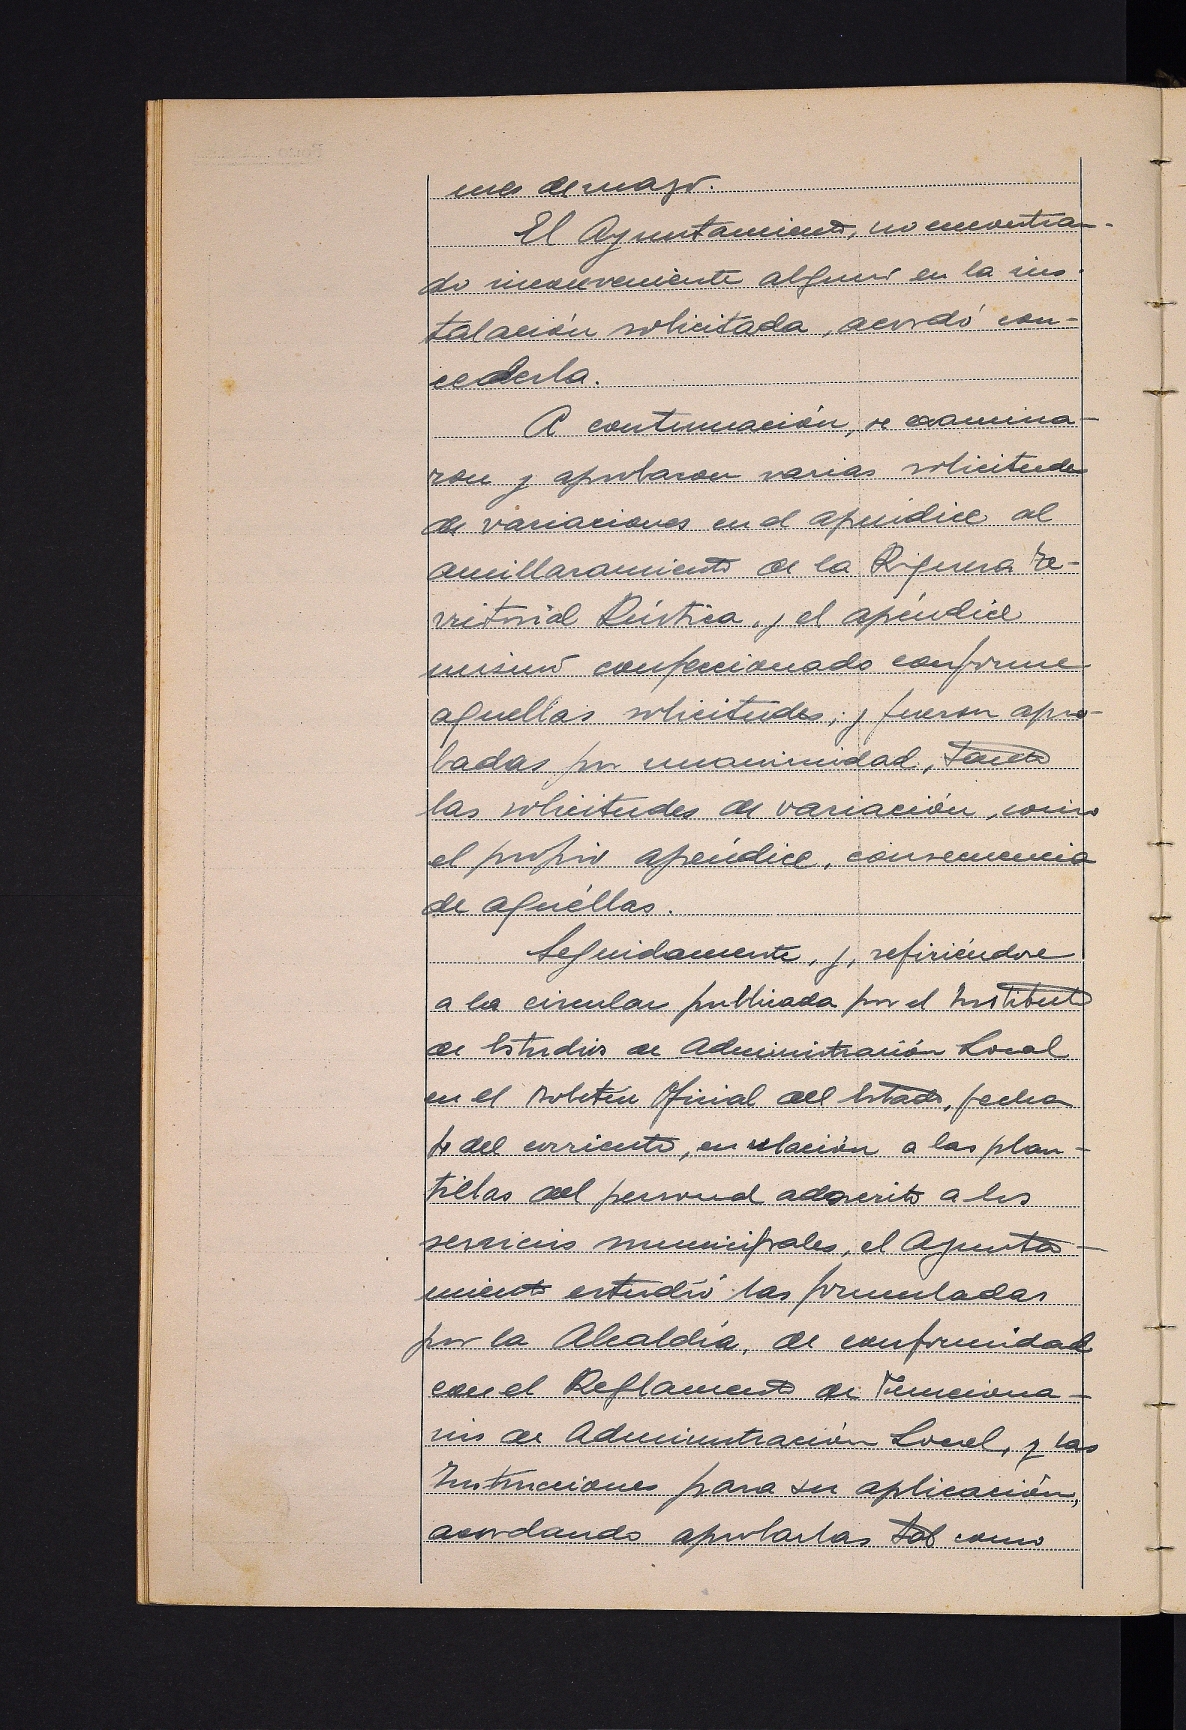 mes de mayo.
El Ayuntamiento, no encontran-
do inconveniente alguno en la ins-
talación solicitada, acordó con-
cederla.
A continuación, se examina-
ron y aprobaron varias solicitudes
de variaciones en el apéndice al
amillaramiento de la Riqueza Te-
rritorial Rústica, y el apéndice
mismo confeccionado conforme
aquellas solicitudes; y fueron apro-
badas por unanimidad, tanto
las solicitudes de variación, como
el propio apéndice, consecuencia
de aquéllas.
Seguidamente, y, refiriéndose
a la circular publicada por el Instituto
de Estudios de Administración Local
en el Boletín Oficial del Estado, fecha
del corriente, en relación a las plan-
tillas del personal adscrito a los
servicios municipales, el Ayunta-
miento estudió las formuladas
por la Alcaldía, de conformidad
con el Reglamento de Funciona-
rios de Administración Local, y las
Instrucciones para su aplicación,
acordando aprobarlas tal como